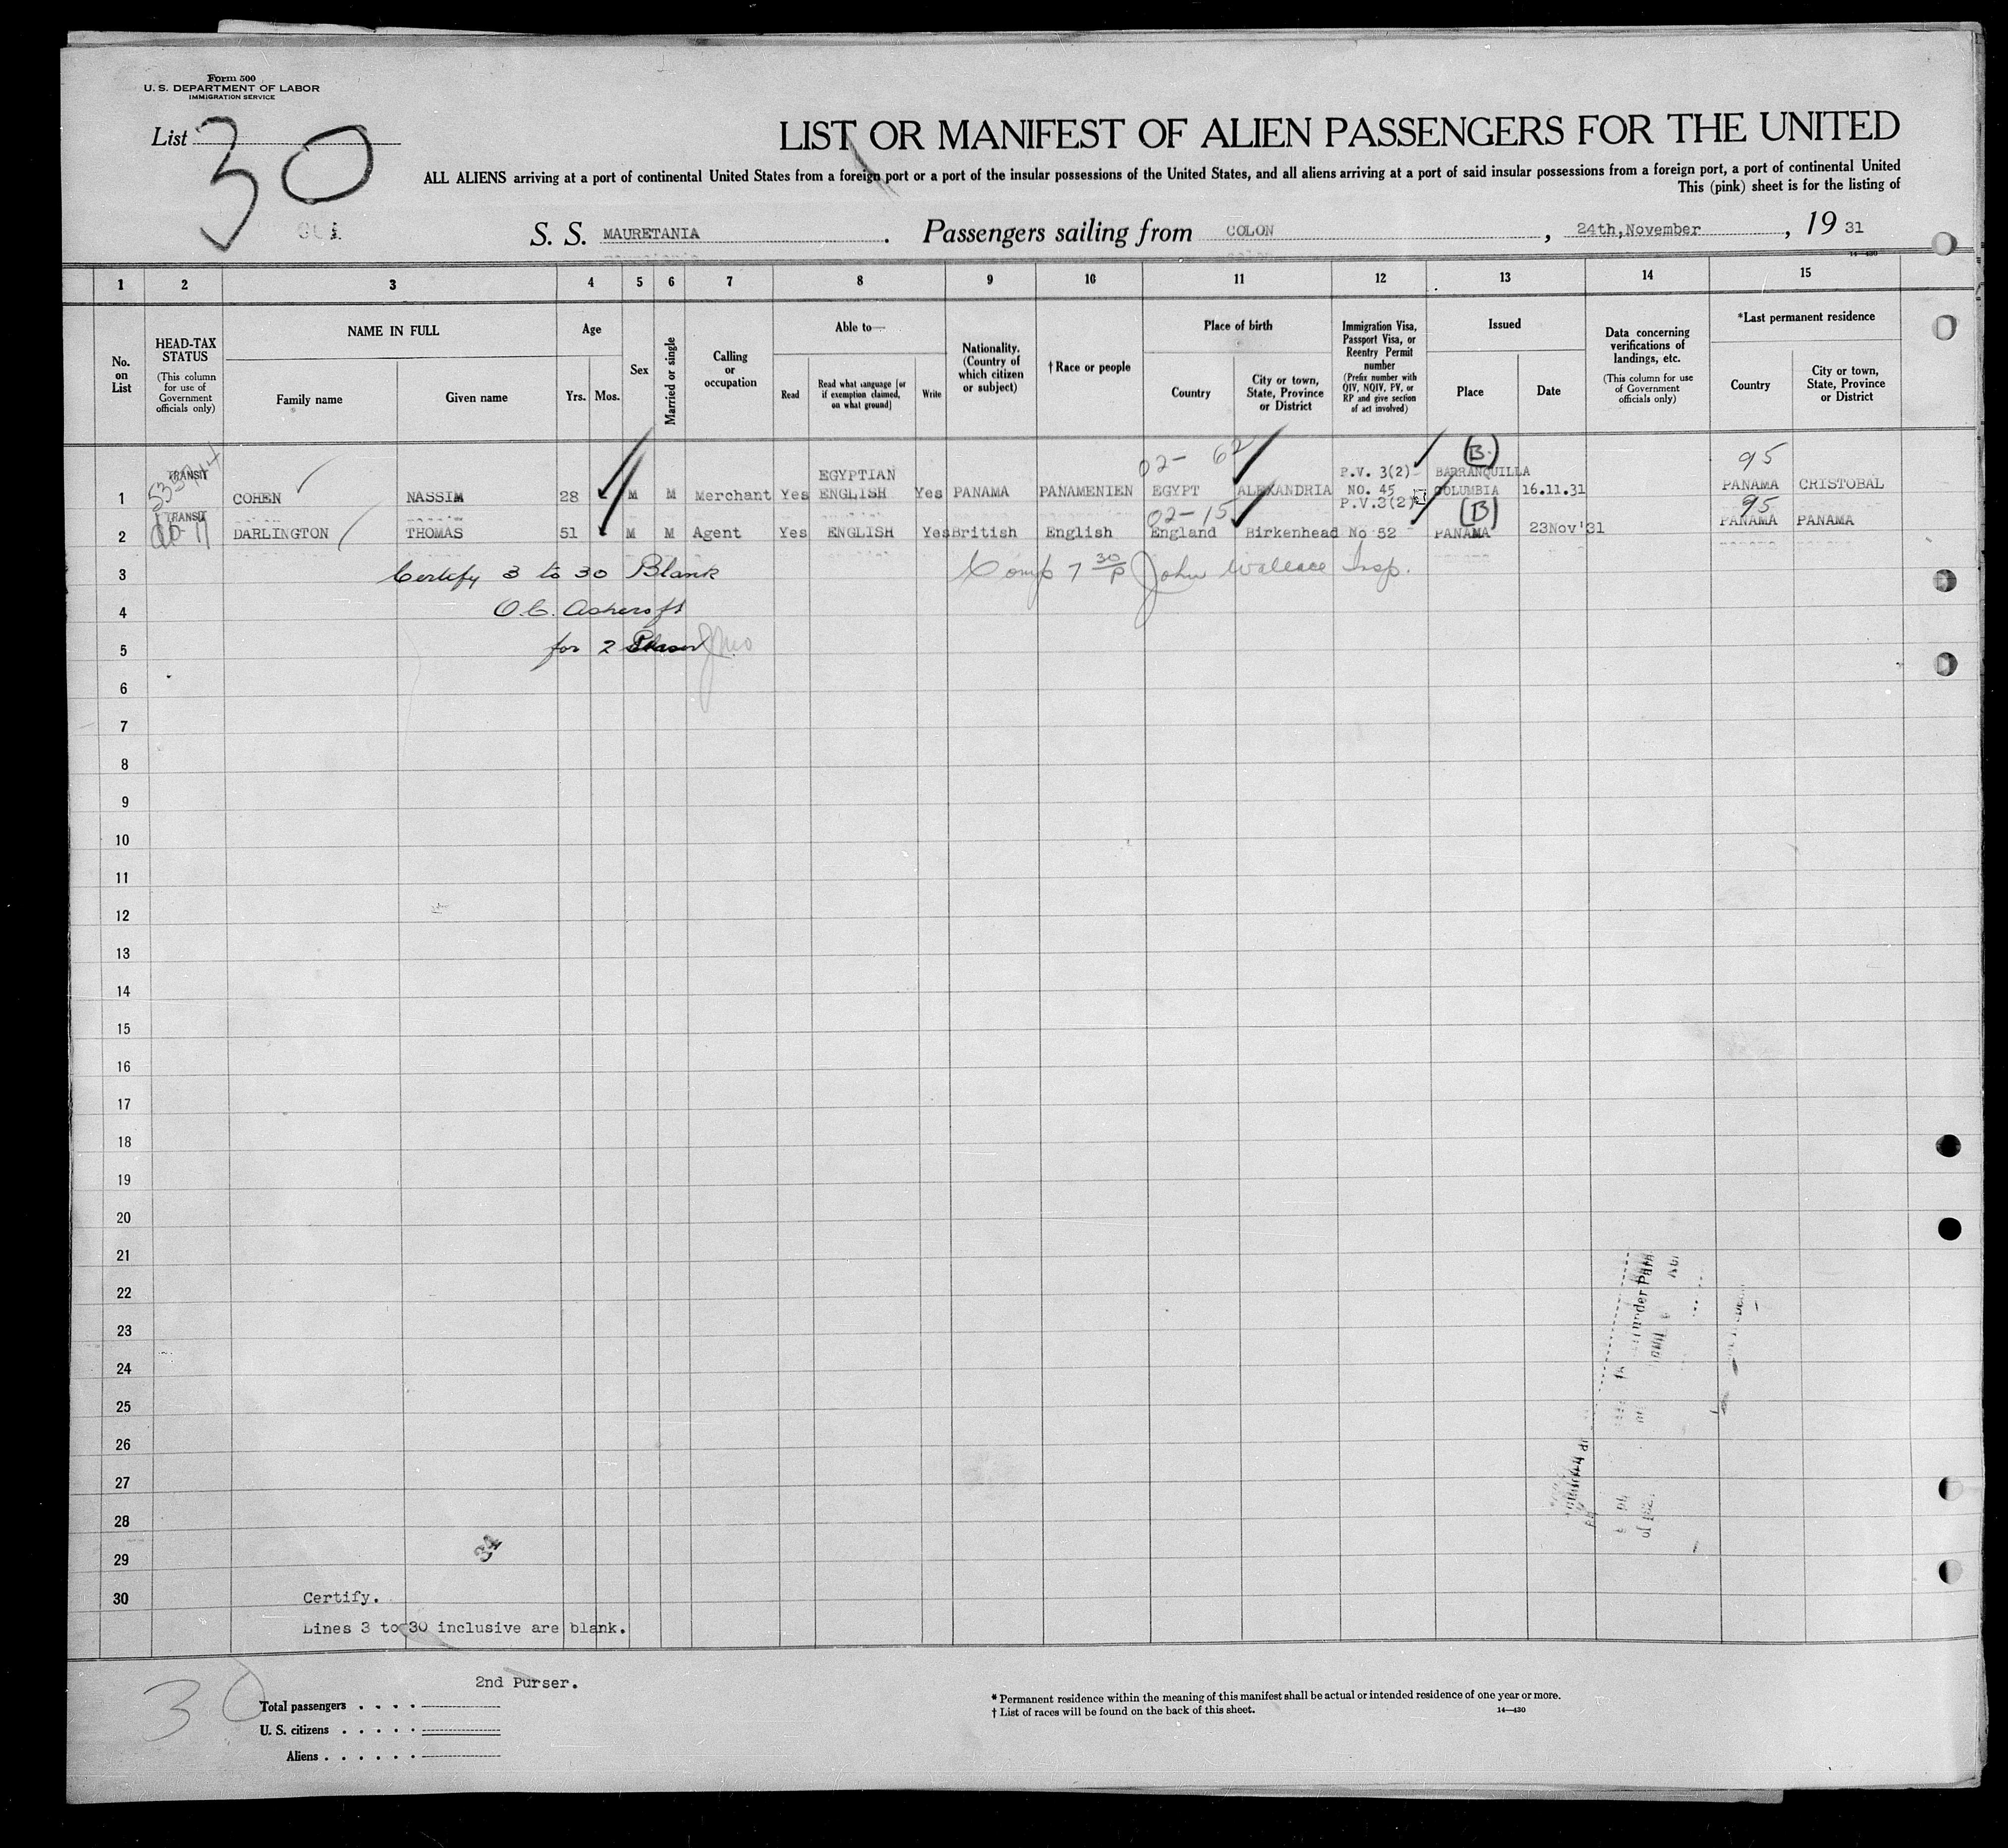 Form 500
U. S. DEPARTMENT OF LABOR
IMMIGRATION SERVICE
List 30
LIST OR MANIFEST OF ALIEN PASSENGERS FOR THE UNITED
ALL ALIENS arriving at a port of continental United States from a foreign port or a port of the insular possessions of the United States, and all aliens arriving at a port of said insular possessions from a foreign port, a port of continental United
This (pink) sheet is for the listing of
S. S. MAURETANIA. Passengers sailing from COLON, 24th,November, 19 31
14—430
1 2 3 4 5 6 7 8 9 10 11 12 13 14 15
No. on List
HEAD-TAX STATUS (This column for use of Government officials only)
NAME IN FULL
Family name Given name
Age
Yrs. Mos.
Sex
Married or single
Calling or occupation
Able to—
Read Read what language [or if exemption claimed, on what ground] Write
Nationality. (Country of which citizen or subject)
† Race or people
Place of birth
Country City or town, State, Province or District
Immigration Visa, Passport Visa, or Reentry Permit number (Prefix number with QIV, NQIV, PV, or RP and give section of act involved)
Issued
Place Date
Data concerning verifications of landings, etc. (This column for use of Government officials only)
*Last permanent residence
Country City or town, State, Province or District
TRANSIT EGYPTIAN 02- 62 P.V. 3(2) (B) BARRANQUILLA 95
1 COHEN NASSIM 28 M M Merchant Yes ENGLISH Yes PANAMA PANAMENIEN EGYPT ALEXANDRIA NO. 45 COLUMBIA 16.11.31 PANAMA CRISTOBAL
TRANSIT 02-15 P.V.3(2) (B) 95
2 DARLINGTON THOMAS 51 M M Agent Yes ENGLISH Yes British English England Birkenhead No 52 PANAMA 23Nov'31 PANAMA PANAMA
3 Certify 3 to 30 Blank Comp 7 30/P John Wallace Insp.
4 O.C. Ashcroft
5 for 2 Purser
6
7
8
9
10
11
12
13
14
15
16
17
18
19
20
21
22
23
24
25
26
27
28
29
30 Certify.
Lines 3 to 30 inclusive are blank.
2nd Purser.
30
Total passengers . . . .
U. S. citizens . . . . .
Aliens . . . . . .
* Permanent residence within the meaning of this manifest shall be actual or intended residence of one year or more.
† List of races will be found on the back of this sheet. 14—430